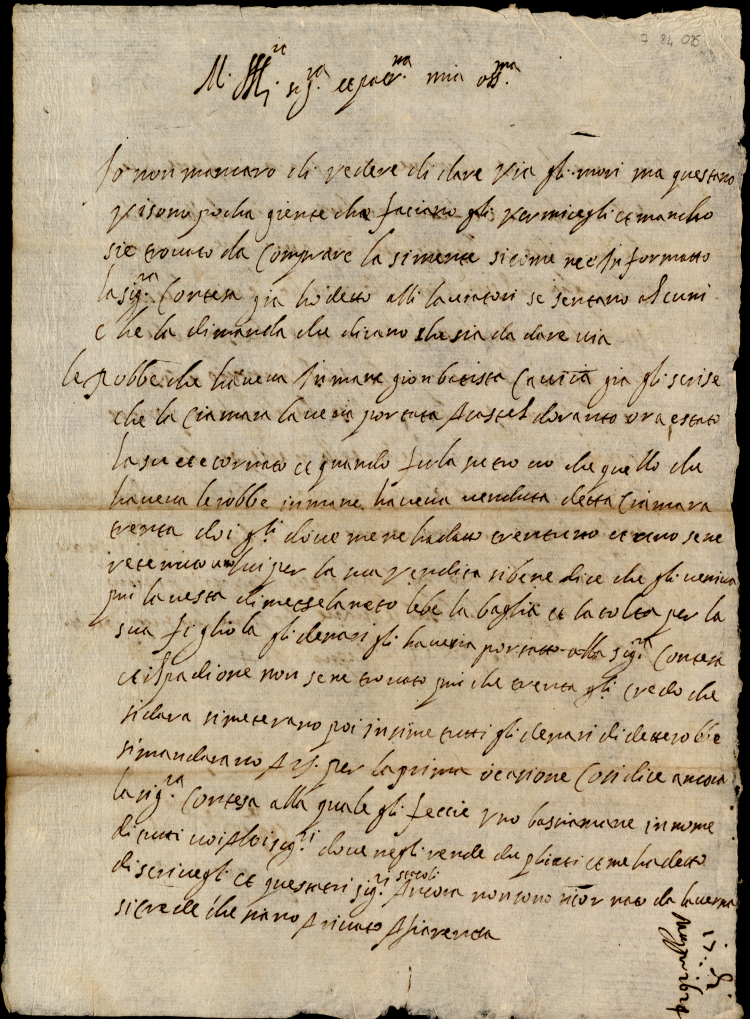 M. Ill.re sig.ra et padr.na mia oss.ma
Io non mancaro di vedere di dare via gli mori ma questano
vi sono pocha giente che faciano gli vermicegli et mancho
sie trovato da Comprare la simente sicome ne o Informatto
la sig.ra Contesa gia ho detto alli lavratori se sentano alcuni
che la dimanda che dicano che sia da dare via
le Robbe che haveva In mane gion batista gia gli scrise
che la Ciamara laveva portata A castel durante ora estato
la su et e tornato et quando fu la su tro vo che quello che
haveva le robbe in mane haveva venduta detta Ciamara
trenta doi g.li dove me ne ha dato trentuno et uno se ne
retenuto lui per la sua vendita sibene dice che gli veniva
piu la vesta di mezelaneto lebe la baglia et la tolta per la
sua figliola gli denari gli haveria portatto alla sig.ra Contesa
et il spadione non se ne trovato piu che trenta g.li credo che
si dara si meterano poi insime tutti gli denari di dette robbe
si mandarano A per la prima ocasione Cosi dice ancora
la sig.ra Contesa alla quale gli feccie uno basciamane in nome
di tutti voi Altri sig.ri dove negli rende du plicati et me ha detto
di scrivegli et questi tri sig.ri Ancora non sono tor nato da laverna
si crede che siano Arivato A fiorenza